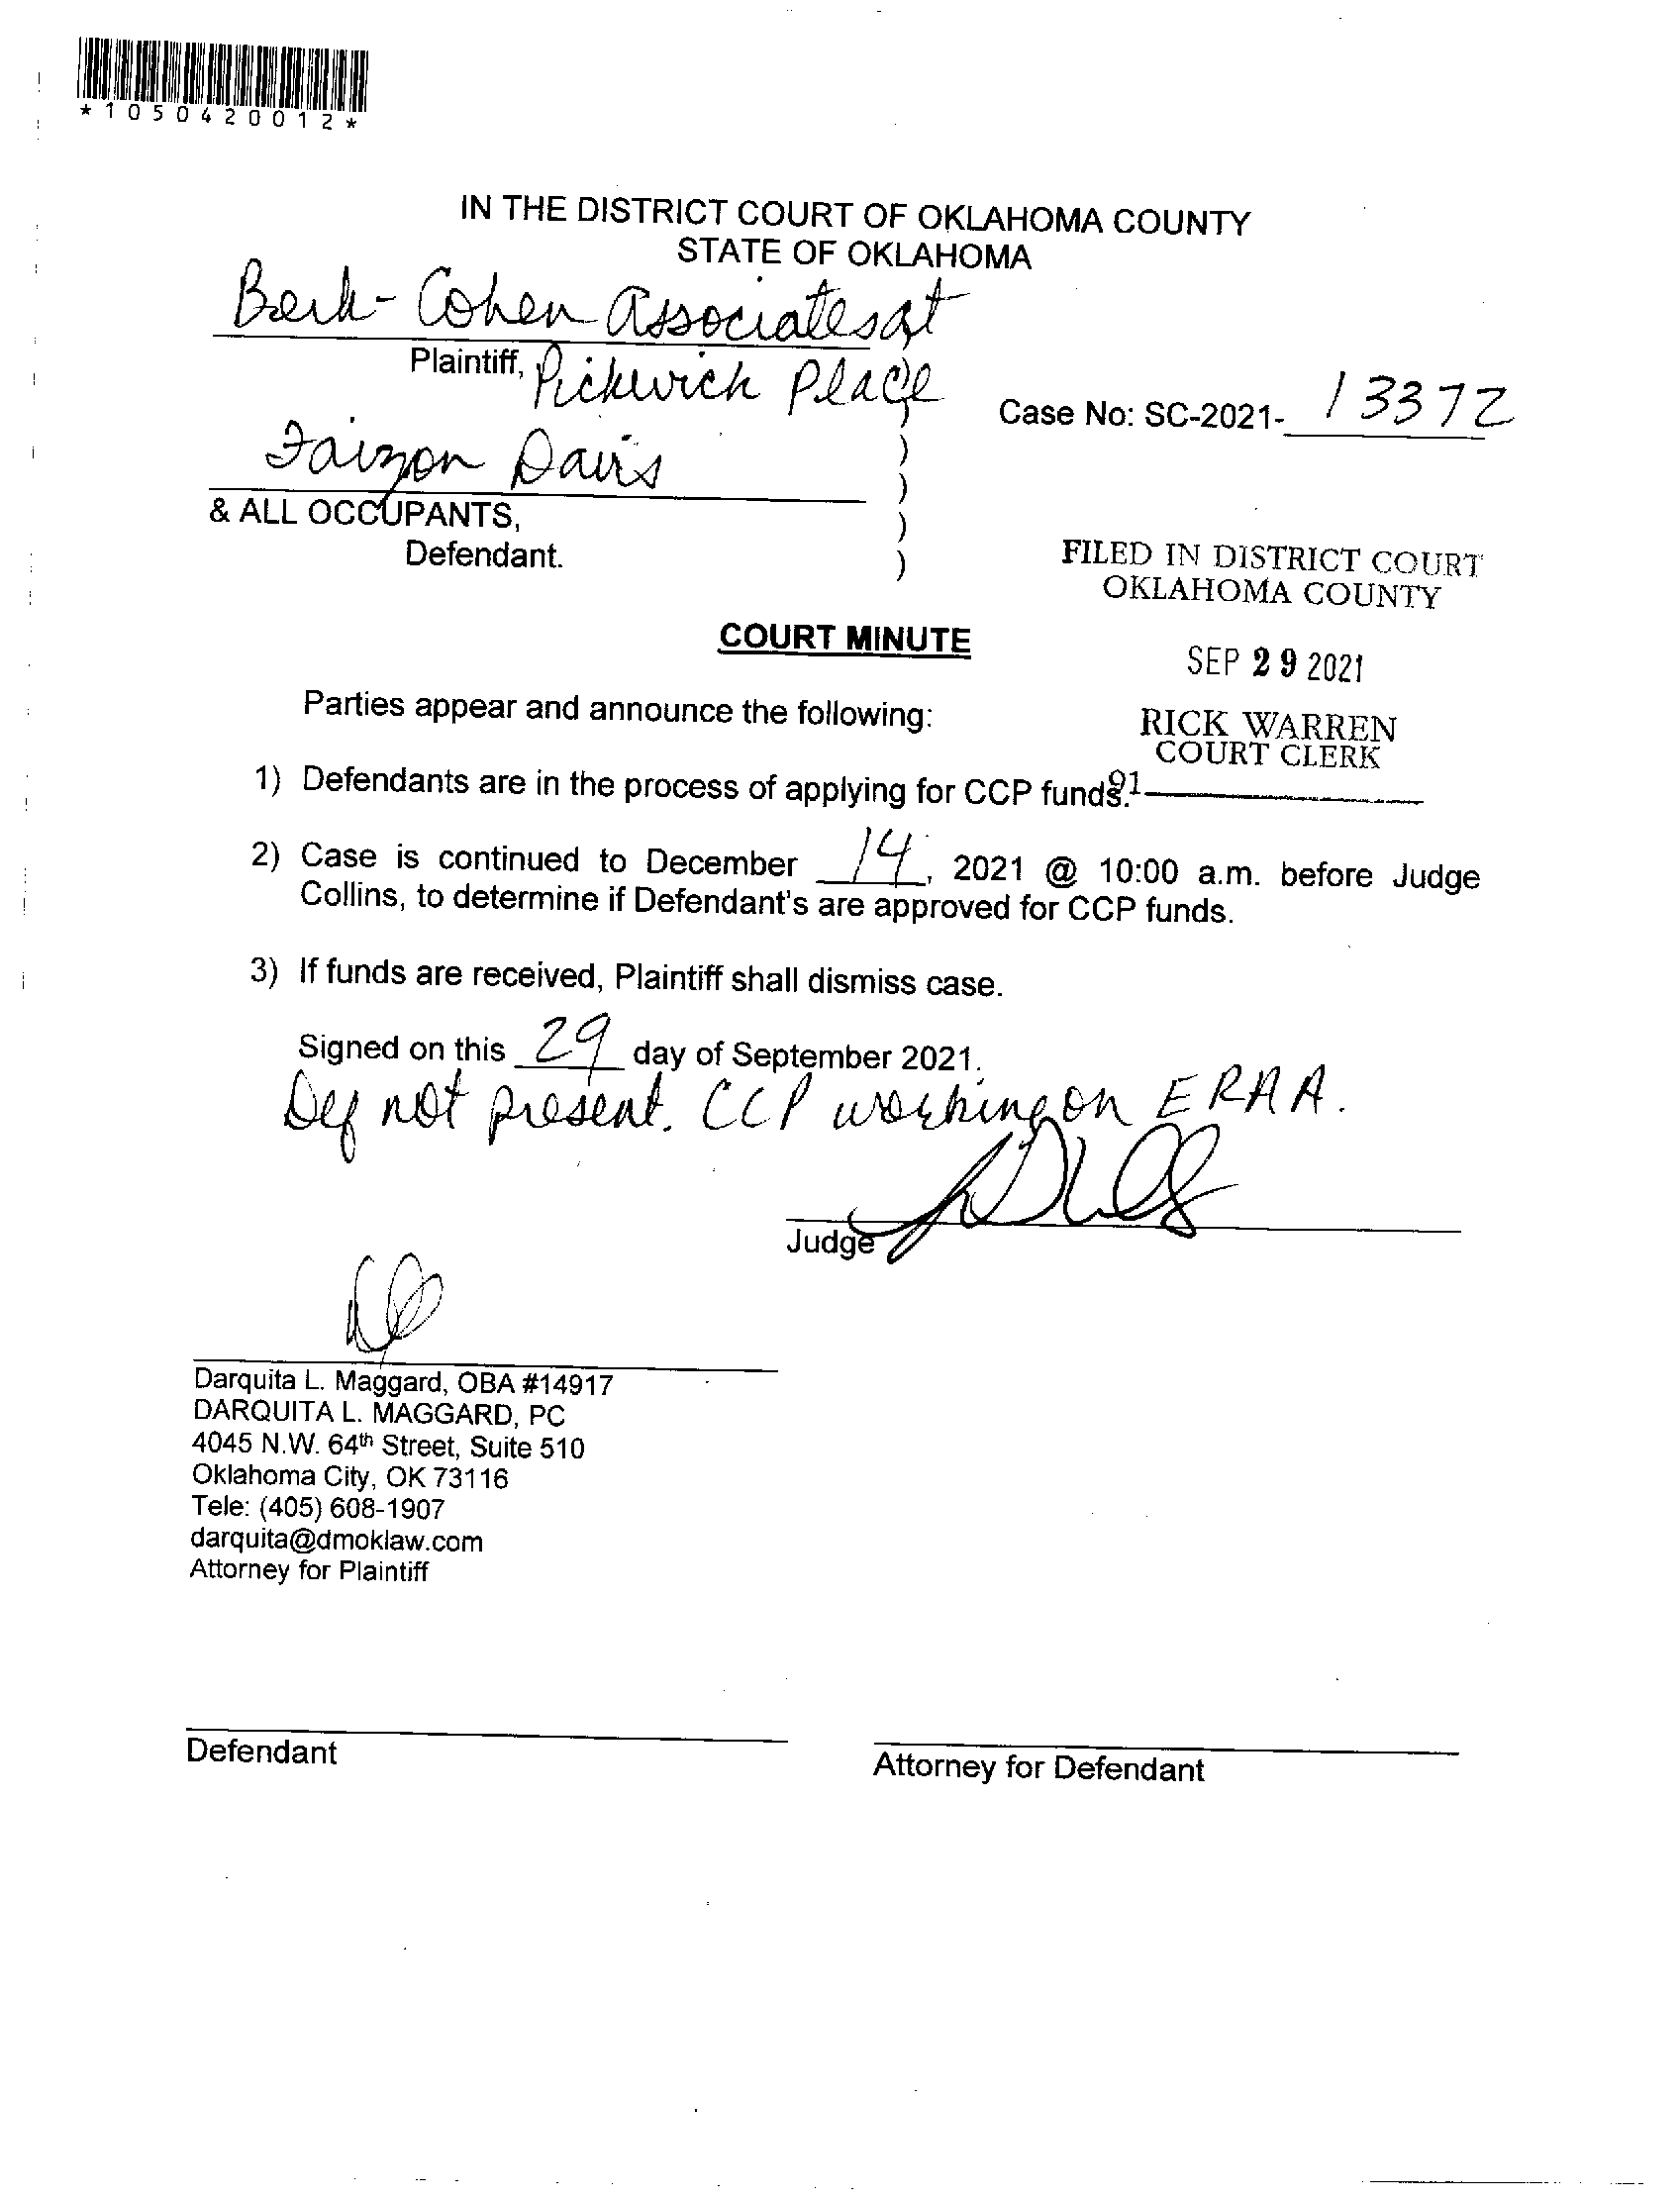 *1050420012*
IN THE DISTRICT COURT OF OKLAHOMA COUNTY
STATE OF OKLAHOMA
Berk-Cohen Associates at
Plaintiff, Pickwich Place
)
Case No: SC-2021- 13372
)
Faizon Davis
)
& ALL OCCUPANTS,
)
Defendant.
)
FILED IN DISTRICT COURT
OKLAHOMA COUNTY
COURT MINUTE
SEP 29 2021
Parties appear and announce the following:
RICK WARREN
COURT CLERK
1) Defendants are in the process of applying for CCP funds.
91
2) Case is continued to December 14, 2021 @ 10:00 a.m. before Judge
Collins, to determine if Defendant's are approved for CCP funds.
3) If funds are received, Plaintiff shall dismiss case.
Signed on this 29 day of September 2021.
Def not present. CCP working on ERAA.
Judge
Darquita L. Maggard, OBA #14917
DARQUITA L. MAGGARD, PC
4045 N.W. 64th Street, Suite 510
Oklahoma City, OK 73116
Tele: (405) 608-1907
darquita@dmoklaw.com
Attorney for Plaintiff
Defendant
Attorney for Defendant